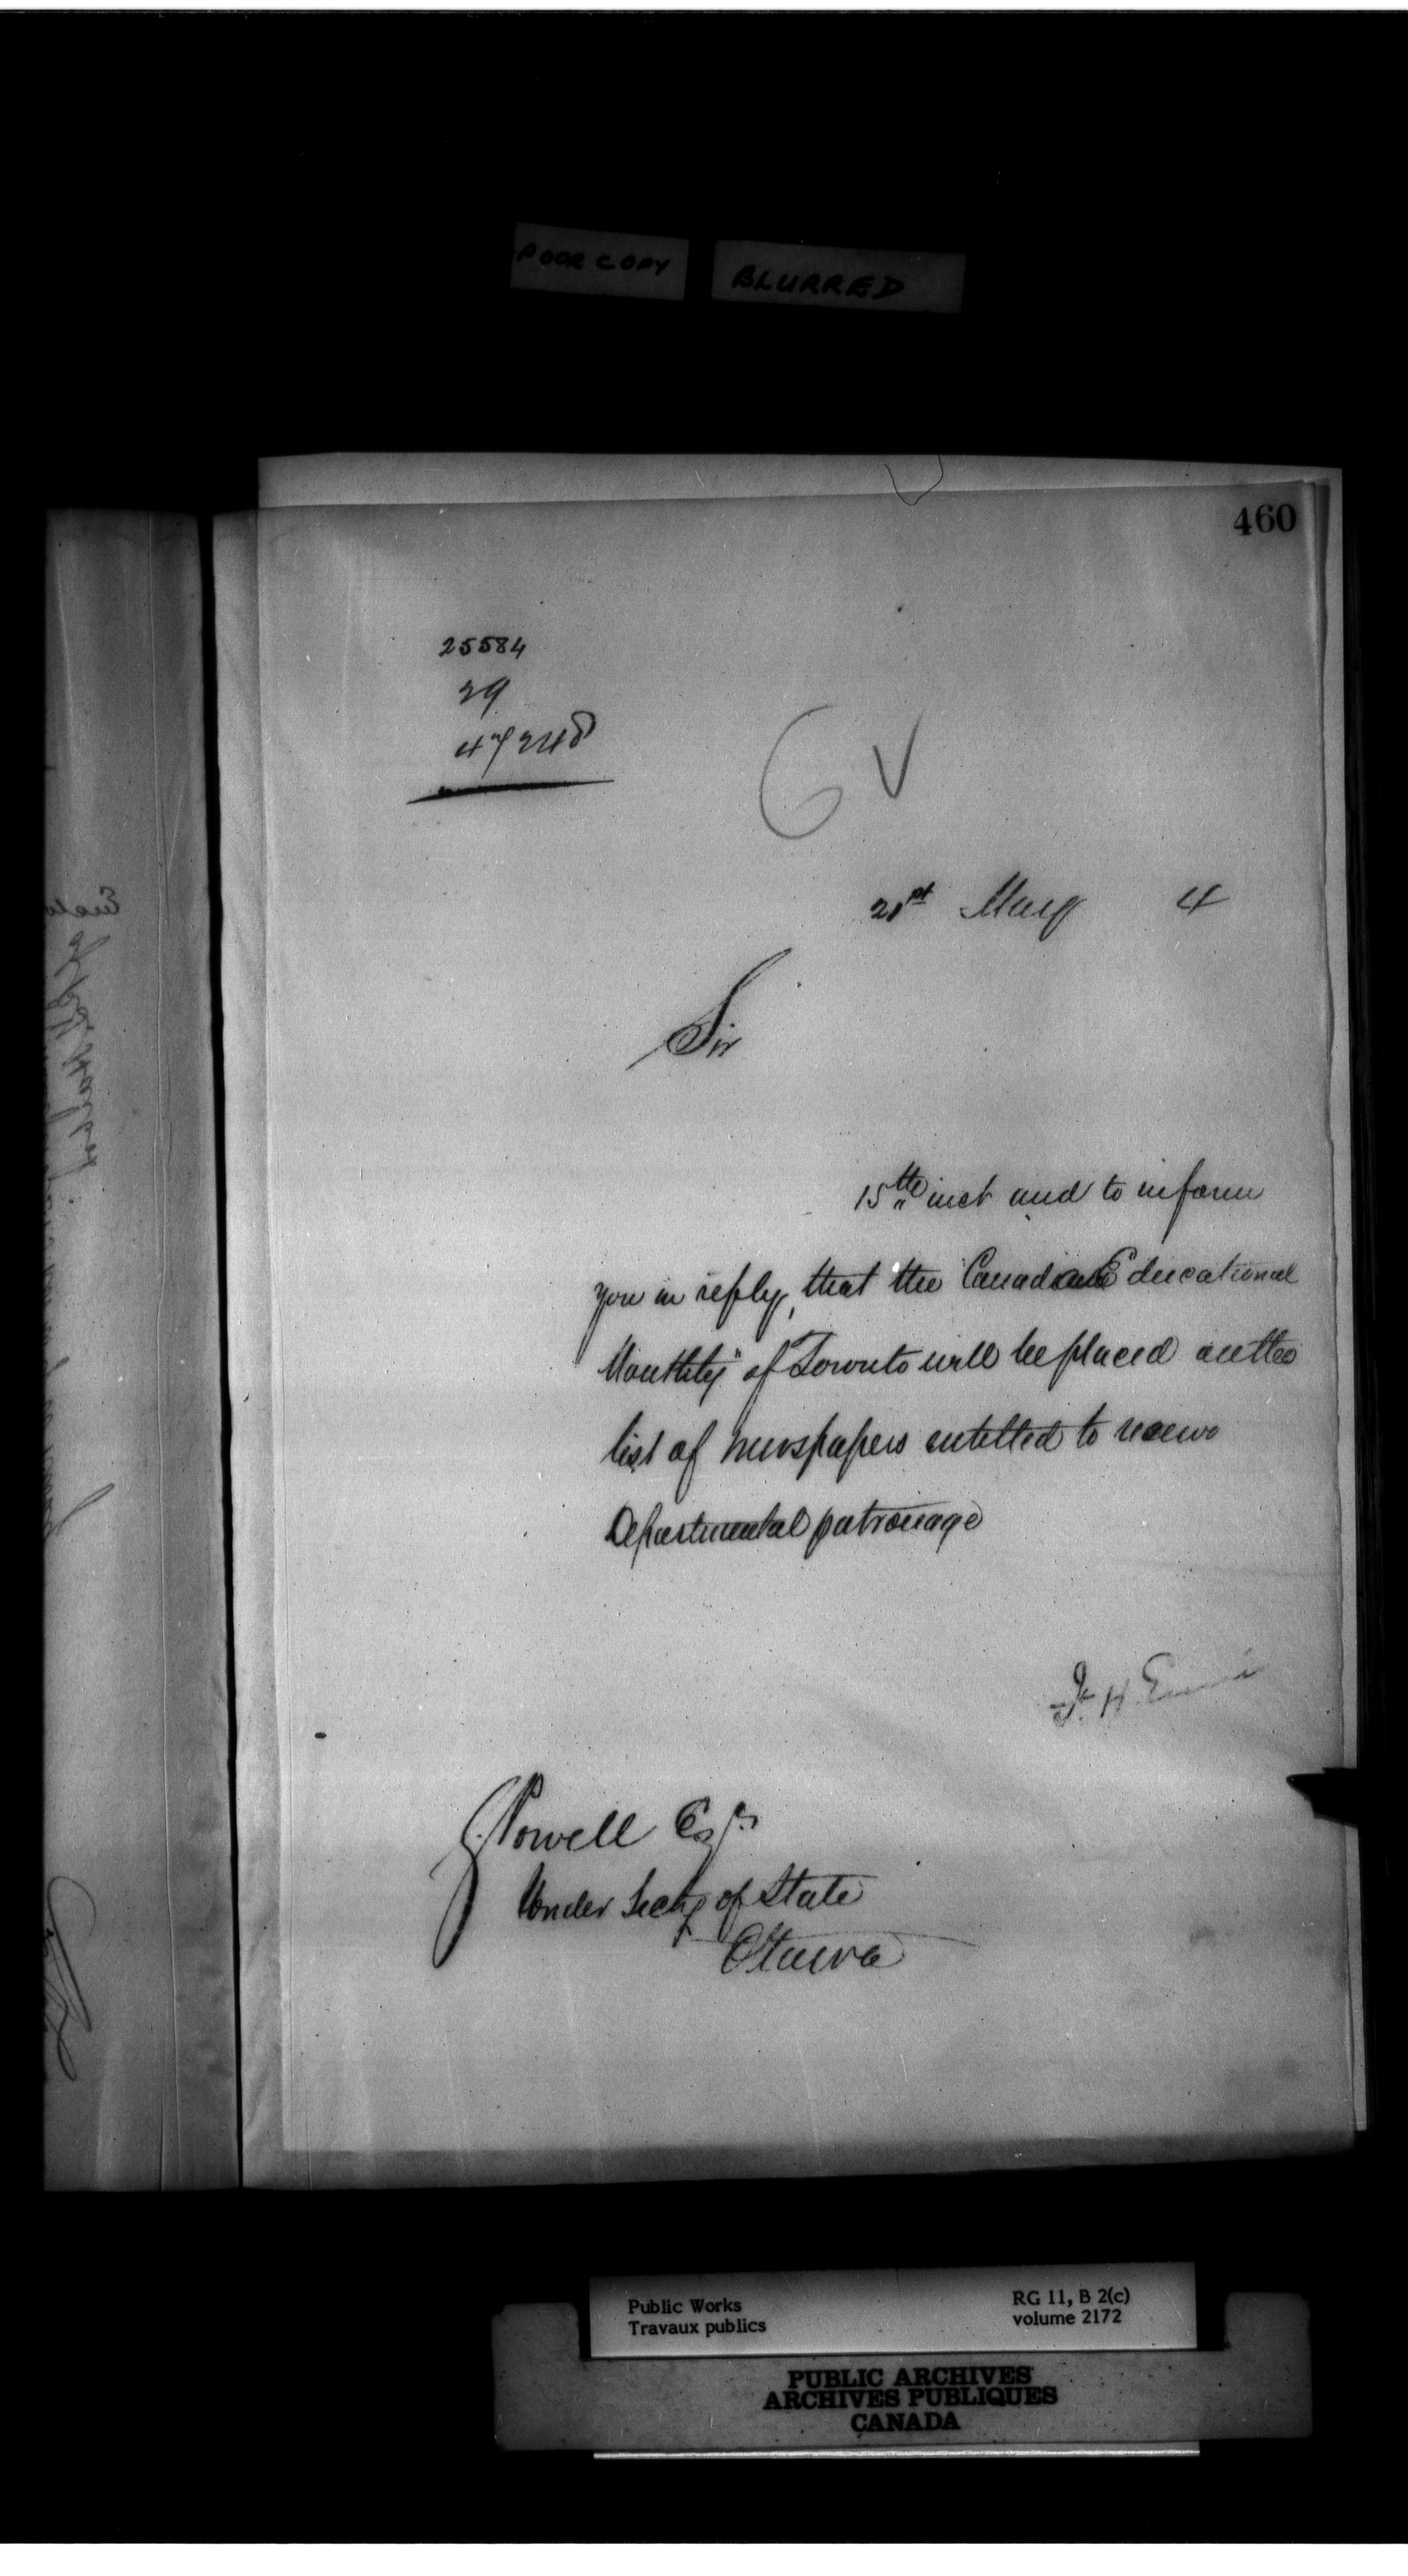 POOR COPY
BLURRED
460
25584
29
47248
6 V
21st May 4
Sir
15th inst and to inform
you in reply, that the Canadian Educational
Monthly" of Toronto will be placed on the
list of newspapers entitled to receive
Departmental patronage
F. H. Ennis
G. Powell Esqr
Under Secty of State
Ottawa
Public Works
Travaux publics
RG 11, B 2(c)
volume 2172
PUBLIC ARCHIVES
ARCHIVES PUBLIQUES
CANADA